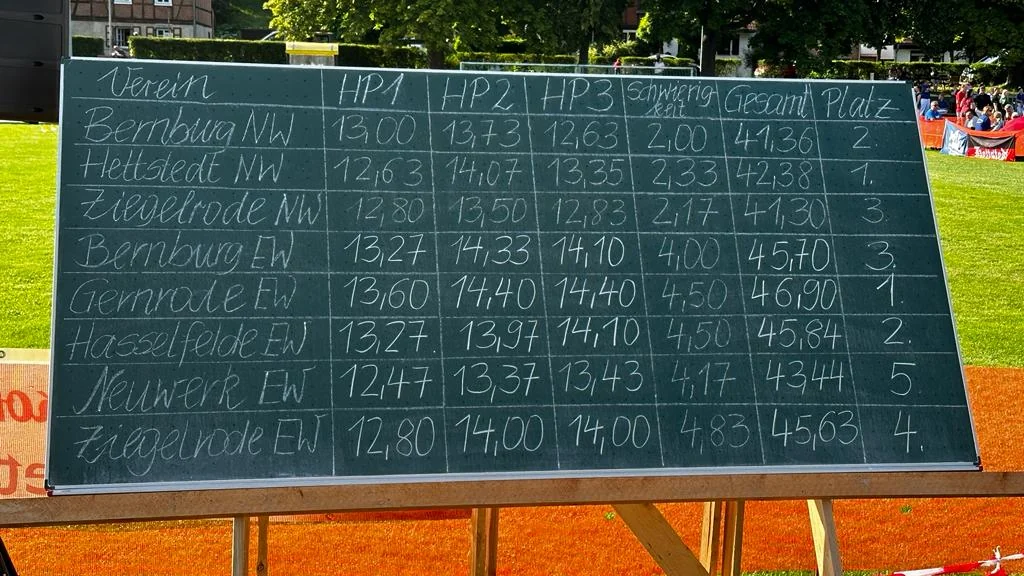 Verein HP1 HP2 HP3 Schwierig keit Gesamt Platz
Bernburg NW 13,00 13,73 12,63 2,00 41,36 2.
Hettstedt NW 12,63 14,07 13,35 2,33 42,38 1.
Ziegelrode NW 12,80 13,50 12,83 2,17 41,30 3.
Bernburg EW 13,27 14,33 14,10 4,00 45,70 3.
Gernrode EW 13,60 14,40 14,40 4,50 46,90 1.
Hasselfelde EW 13,27 13,97 14,10 4,50 45,84 2.
Neuwerk EW 12,47 13,37 13,43 4,17 43,44 5
Ziegelrode EW 12,80 14,00 14,00 4,83 45,63 4.